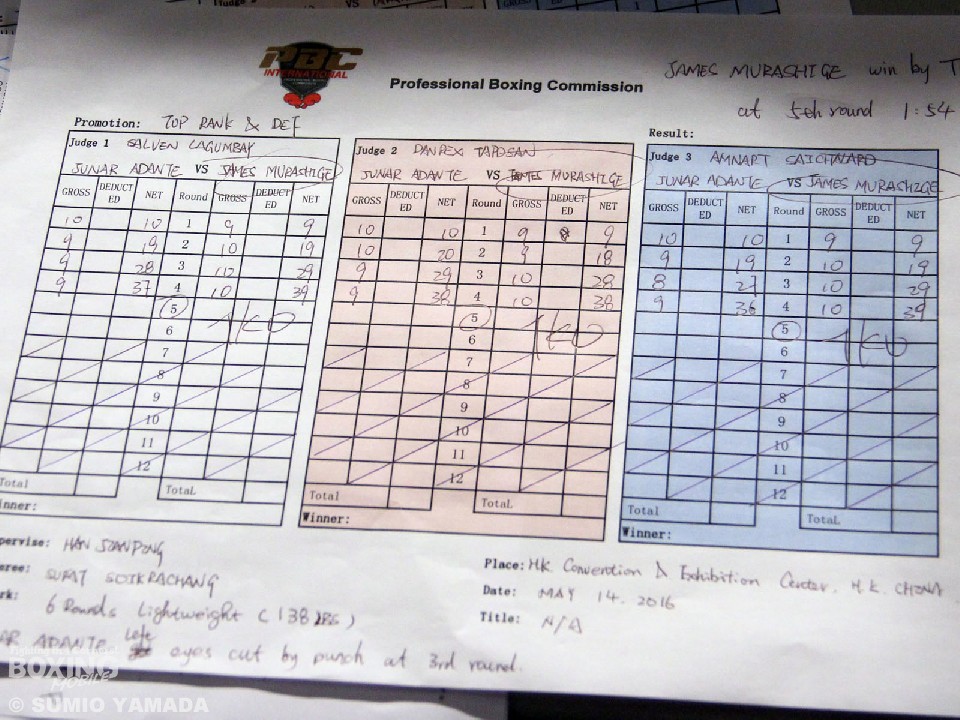 PBC
INTERNATIONAL
Professional Boxing Commission
JAMES MURASHIGE win by T
at 5th round 1:54
Promotion: TOP RANK & DEF
Result:
Judge 1 SALVEN LAGUMBAY
JUNAR ADANTE VS JAMES MURASHIGE
GROSS DEDUCTED NET Round GROSS DEDUCTED NET
10 10 1 9 9
9 19 2 10 19
9 28 3 29
9 37 4 10 39
5 TKO
6
7
8
9
10
11
12
Total Total
nner:
Judge 2 DANREX TAPDSAN
JUNAR ADANTE VS JAMES MURASHIGE
GROSS DEDUCTED NET Round GROSS DEDUCTED NET
10 10 1 9 9
10 20 2 9 18
9 29 3 10 28
9 38 4 10 38
5 TKO
6
7
8
9
10
11
12
Total Total
Winner:
Judge 3 AMNART
JUNAR ADANTE VS JAMES MURASHIGE
GROSS DEDUCTED NET Round GROSS DEDUCTED NET
10 10 1 9 9
9 19 2 10 19
8 27 3 10 29
9 36 4 10 39
5 TKO
6
7
8
9
10
11
12
Total Total
Winner:
pervise: HAN
eree: SOIKRACHANG
rk: 6 Rounds Lightweight (138 LBS)
AR ADANTE Left eyes cut by punch at 3rd round.
Place: HK Convention & Exhibition Center, H.K. CHINA
Date: MAY 14. 2016
Title: N/A
BOXING
MOBILE
© SUMIO YAMADA